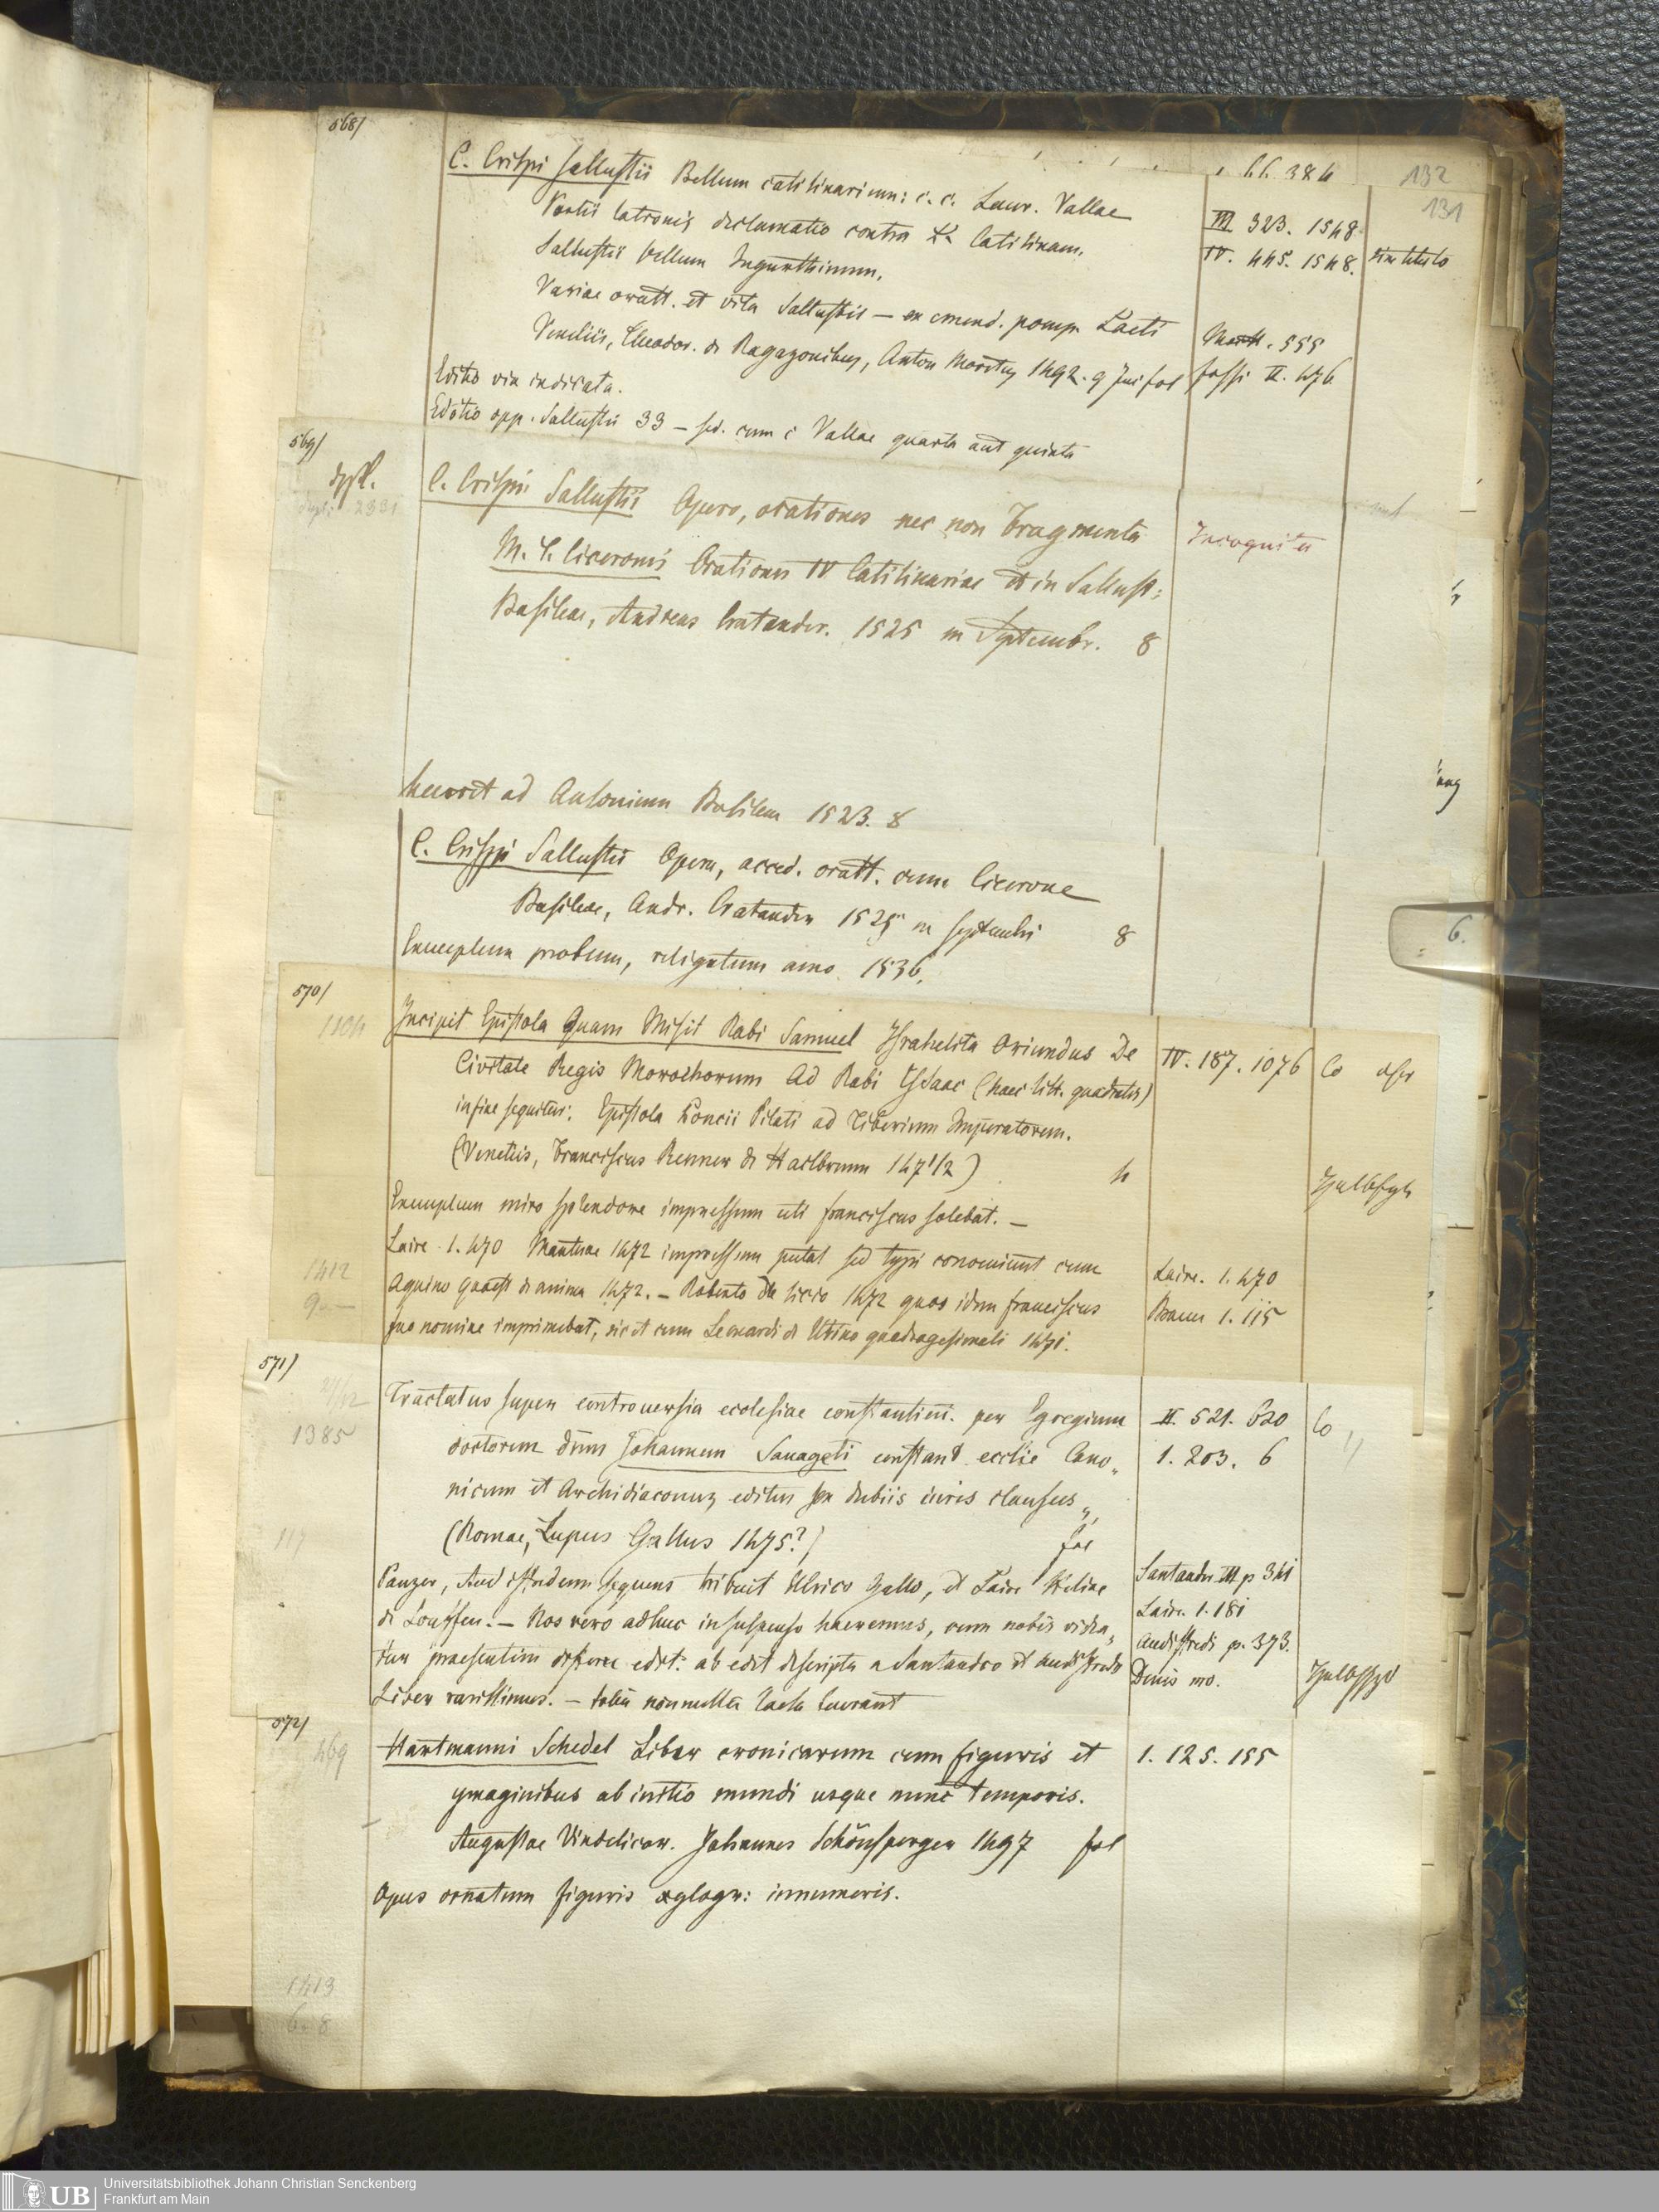 568/
132
131
C. Crispi Sallustii Bellum catilinarium: c. c. Laur. Vallae
III 323. 1548
Portii latronis declamatio contra L. Catilinam.
IV. 445. 1548. sine titulo
Sallustii bellum Jugurthinum.
Variae oratt. et vita Sallustii — ex emend. pomp. Laeti
Maitt. 555
Venetiis, Theodor. de Ragazonibus, 1492. 9 Jui fol
fossi II. 476
Editio vix indicata.
Editio opp. Sallustii 33 — sed. cum c Vallae quarta aut quinta
569/
dpl.
dupl. 2331
C. Crispi Sallustii Opera, orationes nec non Fragmenta
Incognita
M. T. Ciceronis Orationes IV Catilinariae et in Sallust:
Basileae, Andreas Cratander. 1525 m Septembr. 8
haeret ad Ausonium Basileae 1523. 8
C. Crisppi Sallustii Opera, acced. oratt. cum Cicerone
Basileae, Andr. Cratander 1525 m septembri 8
Exemplum probum, religatum anno 1536.
6.
570/
1104
Incipit Epistola Quam Misit Rabi Samuel Israhelita Oriundus De
IV. 187. 1076
Co
Civitate Regis Morochorum Ad Rabi Ysaac (haec litt. quadratis)
in fine sequitur: Epistola Poncii Pilati ad Tiberium Imperatorem.
(Venetiis, Franciscus Renner de Hailbrunn 1471/2) 4
Exemplum miro splendore impressum uti franciscus solebat. —
Laire 1. 470 Mantuae 1472 impressum putat sed typi conveniunt cum
Laire. 1. 470
1412
9.—
Aquino Quaest de anima 1472. — Roberto de Licio 1472 quos idem franciscus
Braun 1. 115
suo nomine imprimebat, sic et cum Leonardi de Utino quadragesimali 1471.
571/
1385
Tractatus super controuersia ecclesiae constantini. per Egregium
II. 521. 620
Co
doctorem dnm Johannem Sauageti constant ecclie Cano„
1. 203. 6
nicum et Archidiaconuz editus pro dubiis iuris clausus„
117
(Romae, Lupus Gallus 1475?) fol
Panzer, Audiffredum sequens tribuit Ulrico Gallo, et Laire Heliae
Santander III p 341
de Louffen. — Nos vero adhuc in suspenso haeremus, cum nobis videa„
Laire. 1. 181
Audiffredi p. 373.
tur praesentim differre edit: ab edit descripta a Santandro et Audiffredo
Denis mo.
Liber rarissimus. — folia nonnulla
572/
469
Hartmanni Schedel Liber cronicarum cum figuris et
1. 125. 155
ymaginibus ab initio mundi usque nunc temporis.
Augustae Vindelicor. Johannes Schönsperger 1497 fol
Opus ornatum figuris xylogr: innumeris.
1413
6. 8
UB
Universitätsbibliothek Johann Christian Senckenberg
Frankfurt am Main